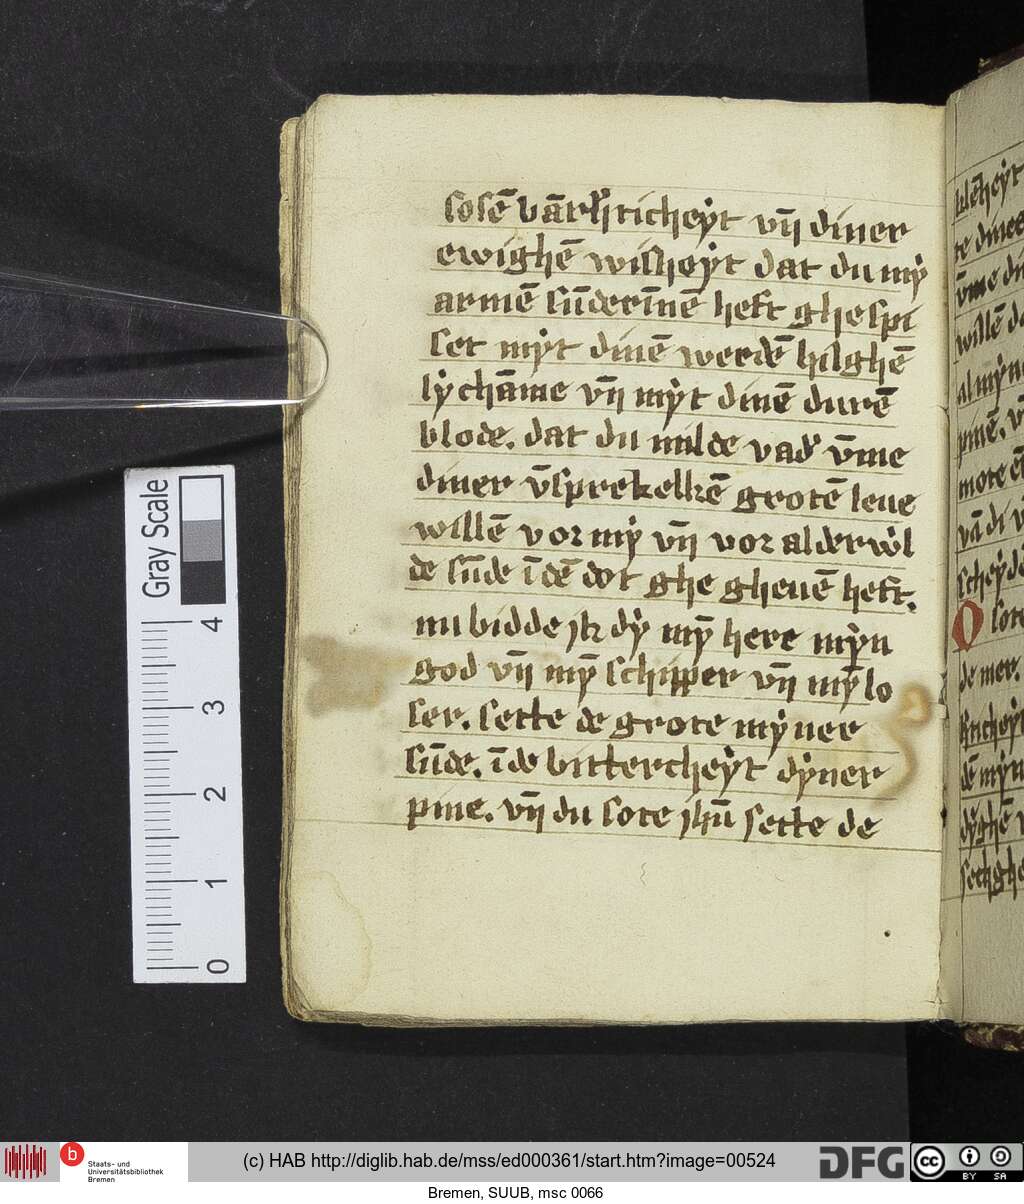 losē vārh̓ticheẏt vn̄ diner
ewighē wisheẏt dat du mẏ
armē sūderīnē heft ghespi
set mẏt dinē werdē hilghē
lẏchāme vn̄ mẏt dinē durē
blode. dat du milde vad̓ v̄me
diner v̄sprekelkē grotē leue
willē vor mẏ vn̄ vor alderw̓l
de sūde ī dē dot ghe gheuē heft.
nu bidde ik dẏ mẏ̄ here mẏn
god vn̄ mẏ̄ schipper vn̄ mẏ̄ lo
ser. sette de grote mẏner
sūde. ī de bittercheẏt dẏner
pine. vn̄ du sote ihū sette de
Gray Scale
4
3
2
1
0
b
Staats- und
Universitätsbibliothek
Bremen
(c) HAB http://diglib.hab.de/mss/ed000361/start.htm?image=00524
DFG
cc
BY SA
Bremen, SUUB, msc 0066